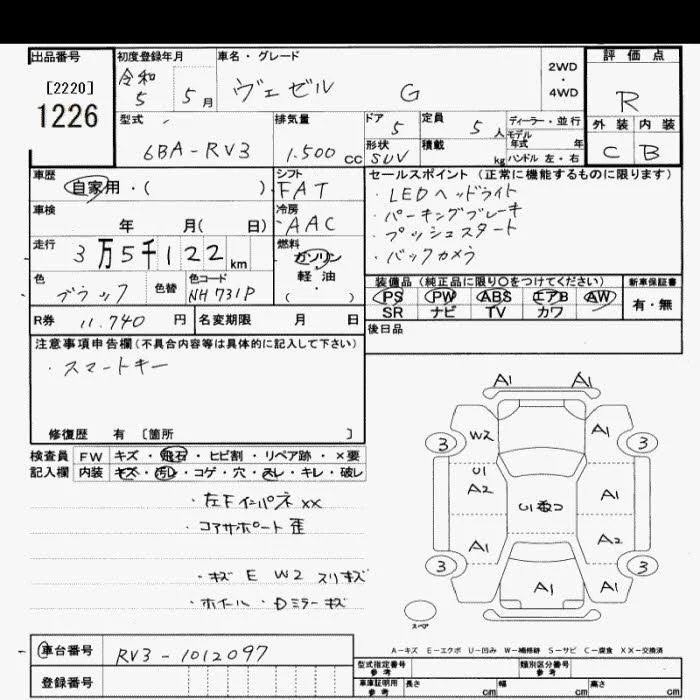 出品番号
[2220]
1226
初度登録年月
令和
5 5月
車名・グレード
ヴェゼル G
2WD
・
4WD
評価点
R
外装 内装
C B
型式
6BA-RV3
排気量
1.500cc
ドア
5
形状
SUV
定員
5人
積載
kg
ディーラー・並行
モデル
年式 年
ハンドル 左・右
車歴
自家用・( )
シフト
FAT
車検
年 月( 日)
冷房
AAC
走行
3万5千122km
燃料
ガソリン
軽・油
( )
色
ブラック
色替
色コード
NH731P
R券 11.740円
名変期限 月 日
セールスポイント(正常に機能するものに限ります)
・LEDヘッドライト
・パーキングブレーキ
・プッシュスタート
・バックカメラ
装備品(純正品に限り○をつけてください)
PS PW ABS エアB AW
SR ナビ TV カワ
新車保証書
有・無
後日品
注意事項申告欄(不具合内容等は具体的に記入して下さい)
・スマートキー
修復歴 有 〔箇所 〕
検査員 FW キズ・飛石・ヒビ割・リペア跡・×要
記入欄 内装 キズ・汚レ・コゲ・穴・スレ・キレ・破レ
・左Fインパネ XX
・コアサポート歪
・キズ E W2 スリキズ
・ホイール・Dミラーキズ
A1 A1
W2 A1
3 3
U1
A2 A1
A1 A2
3 3
A1 A1
スペア
A-キズ E-エクボ U-凹み W-補修跡 S-サビ C-腐食 XX-交換済
車台番号 RV3-1012097
登録番号
型式指定番号
参考
類別区分番号
参考
車庫証明用
参考
長さ cm 幅 cm 高さ cm